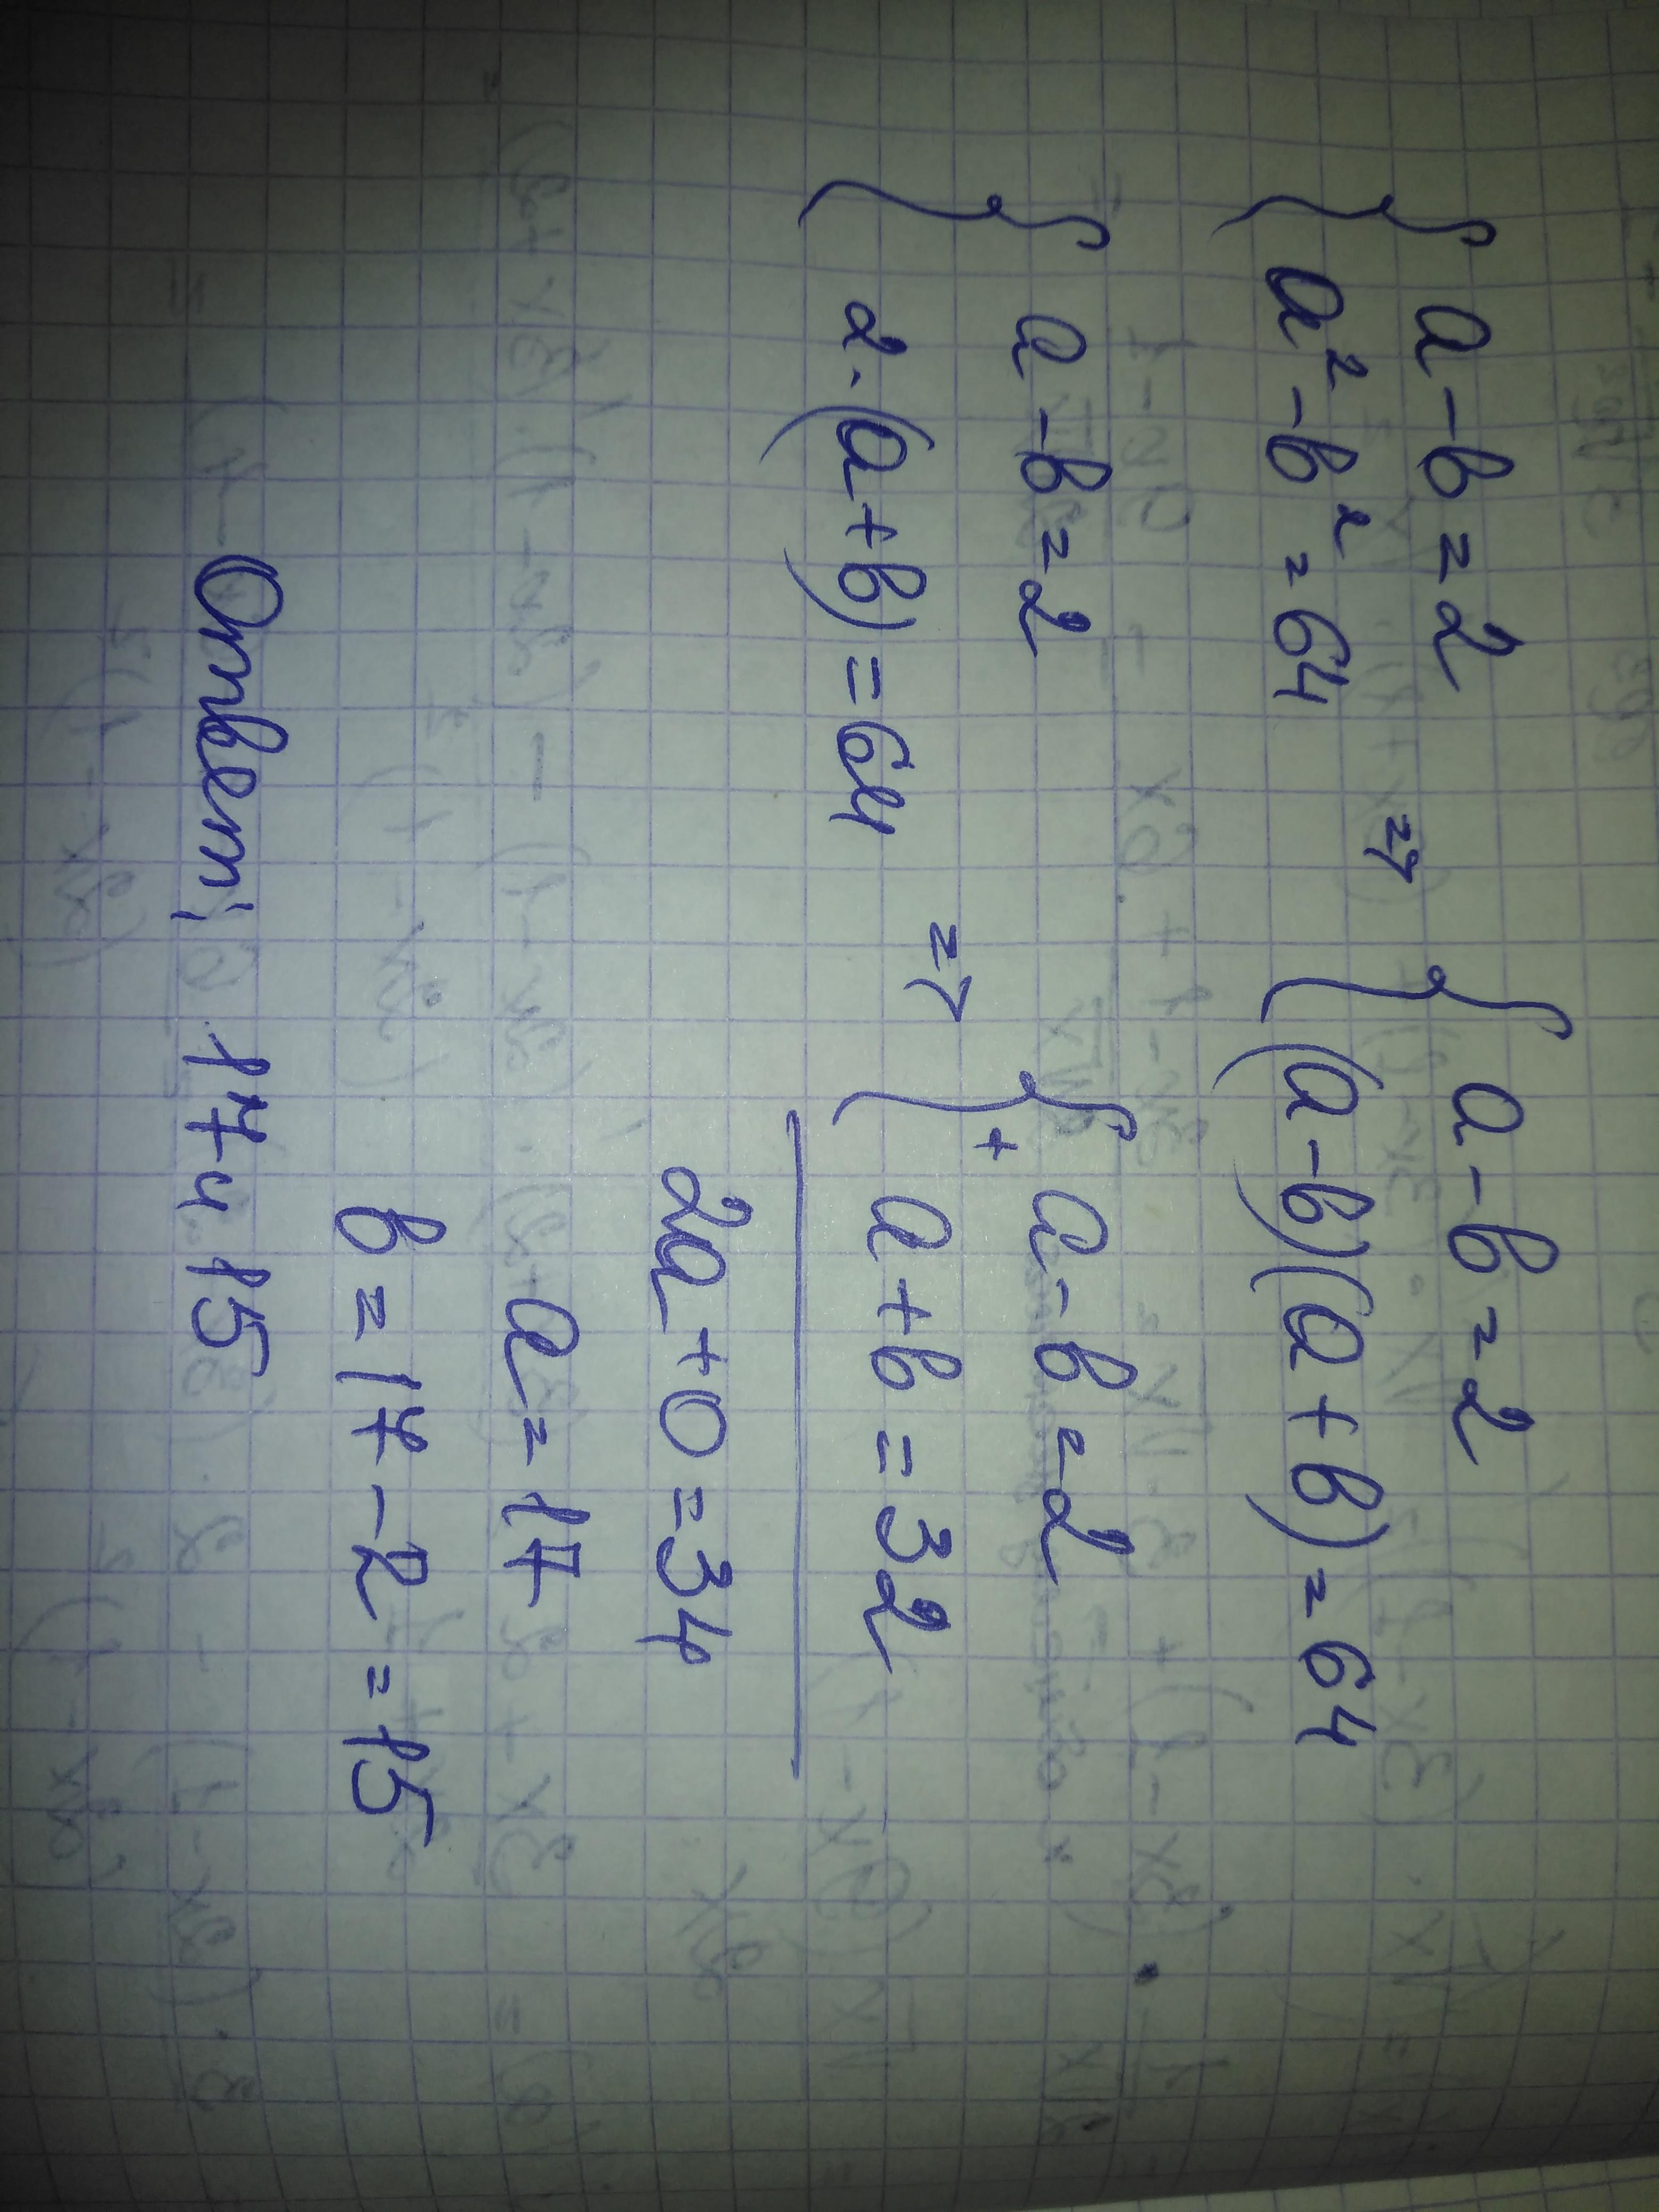 a-b=2 => a-b=2
a²-b²=64 (a-b)(a+b)=64
a-b=2 => a-b=2
2·(a+b)=64 + a+b=32
2a+0=34
a=17
b=17-2=15
Ответ: 17 и 15